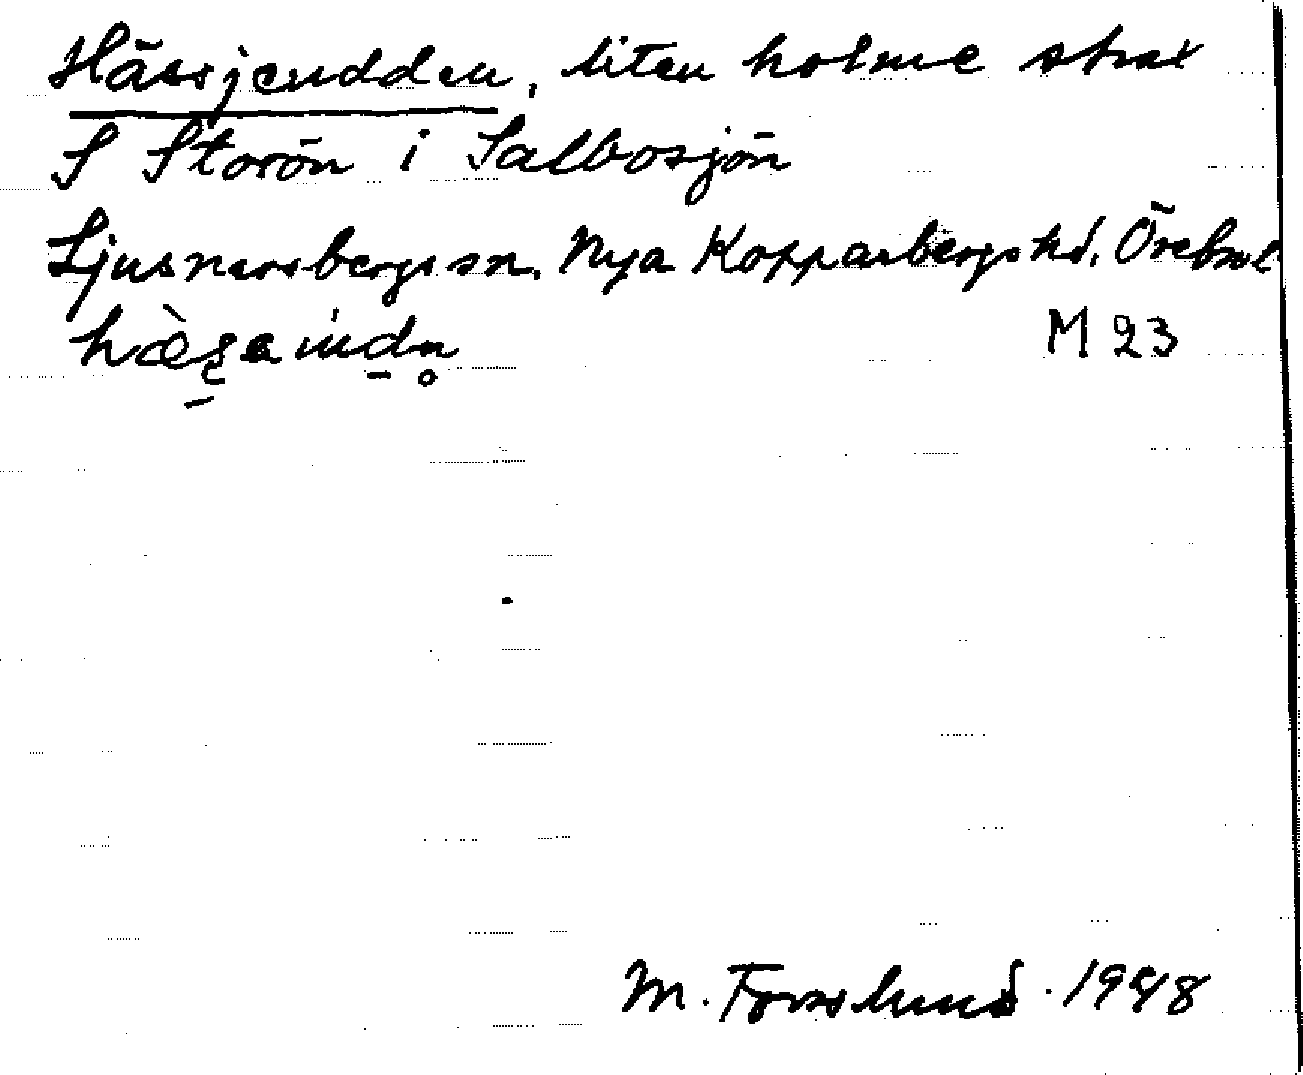 Hässjeudden, liten holme strax
S Storön i Salbosjön
Ljusnarsbergs sn. Nya Kopparbergs hd, Örebro l
M 23
M. Forsslund. 1948